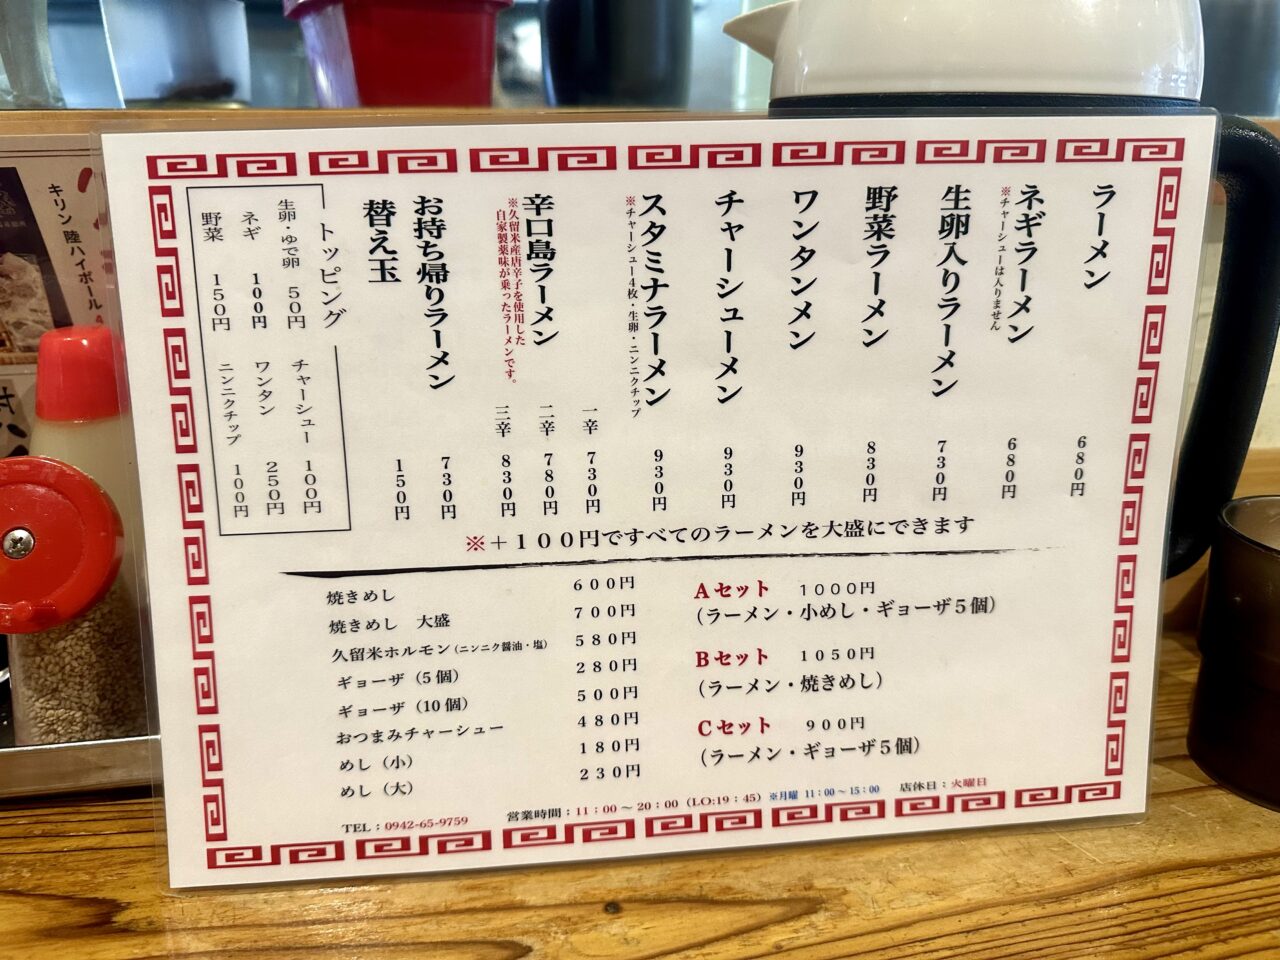 ラーメン 680円
ネギラーメン 680円
※チャーシューは入りません
生卵入りラーメン 730円
野菜ラーメン 830円
ワンタンメン 930円
チャーシューメン 930円
スタミナラーメン 930円
※チャーシュー4枚・生卵・ニンニクチップ
辛口島ラーメン
一辛 730円
二辛 780円
三辛 830円
※久留米産唐辛子を使用した
自家製薬味が乗ったラーメンです。
お持ち帰りラーメン 730円
替え玉 150円
トッピング
生卵・ゆで卵 50円
ネギ 100円
野菜 150円
チャーシュー 100円
ワンタン 250円
ニンニクチップ 100円
※+100円ですべてのラーメンを大盛にできます
焼きめし 600円
焼きめし 大盛 700円
久留米ホルモン(ニンニク醤油・塩) 580円
ギョーザ(5個) 280円
ギョーザ(10個) 500円
おつまみチャーシュー 480円
めし(小) 180円
めし(大) 230円
Aセット 1000円
(ラーメン・小めし・ギョーザ5個)
Bセット 1050円
(ラーメン・焼きめし)
Cセット 900円
(ラーメン・ギョーザ5個)
TEL:0942-65-9759
営業時間:11:00~20:00(LO:19:45)※月曜 11:00~15:00 店休日:火曜日
キリン 陸ハイボール